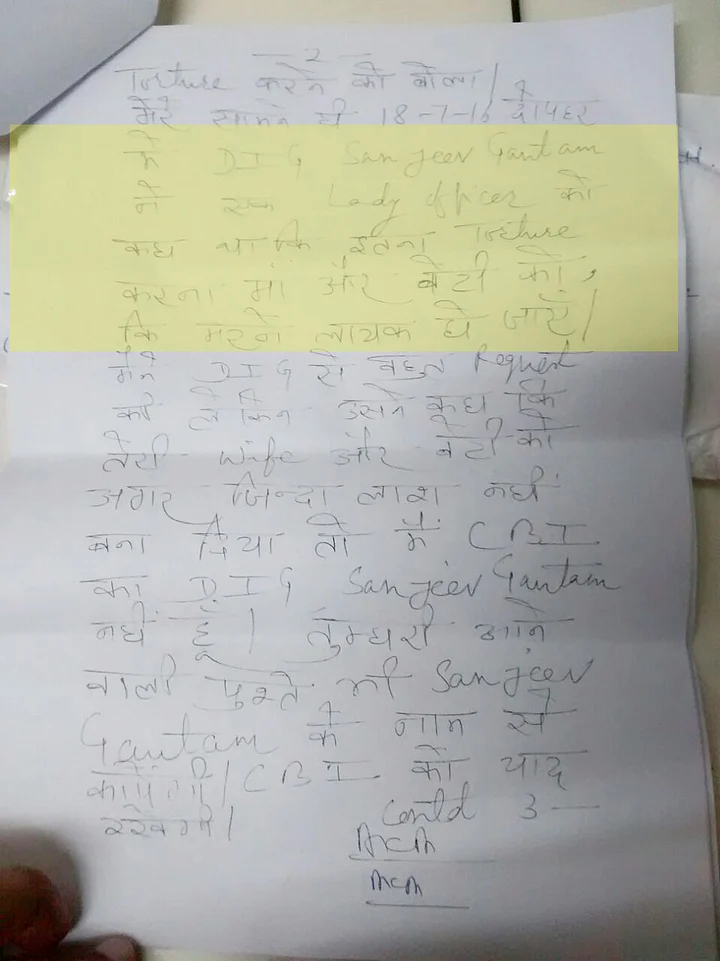 — 2 —
Torture करने को बोला।
मेरे सामने ही 18-7-16 दोपहर
में DIG Sanjeev Gautam
ने एक Lady officer को
कहा था कि इतना Torture
करना मां और बेटी को,
कि मरने लायक हो जाएँ।
मैंने DIG से बहुत Request
की लेकिन उसने कहा कि
तेरी wife और बेटी को
अगर जिन्दा लाश नहीं
बना दिया तो मैं CBI
का DIG Sanjeev Gautam
नहीं हूँ। तुम्हारी आने
वाली पुश्ते भी Sanjeev
Gautam के नाम से
काँपेगी। CBI को याद
रखेगी।
Contd 3 —